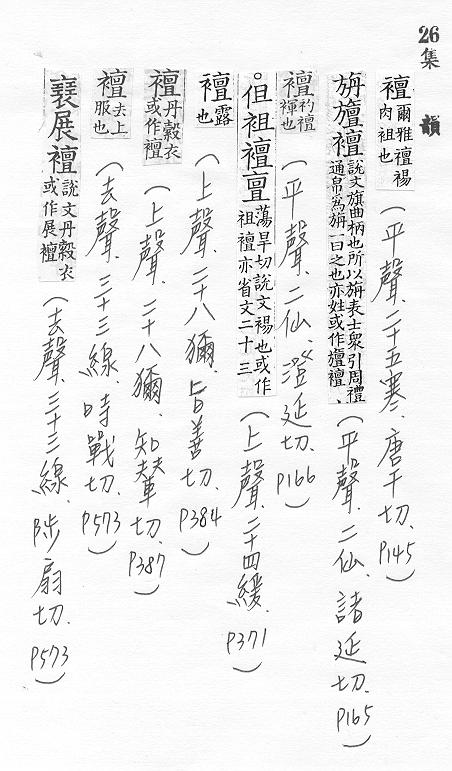 26
集韻
襢爾雅襢裼肉袒也（平聲、二十五寒、唐干切、P145）
旃旜襢說文旗曲柄也所以旃表士衆引周禮通帛爲旃一曰之也亦姓或作旜襢、（平聲、二仙、諸延切、P165）
襢袀襢褌也（平聲、二仙、澄延切、P166）
。但袒襢亶蕩旱切說文裼也或作袒襢亦省文二十三（上聲、二十四緩、P371）
襢露也（上聲、二十八獮、旨善切、P384）
襢丹縠衣或作襢（上聲、二十八獮、知輦切、P387）
襢去上服也（去聲、三十三線、時戰切、P573）
襄展襢說文丹縠衣或作展襢（去聲、三十三線、陟扇切、P573）